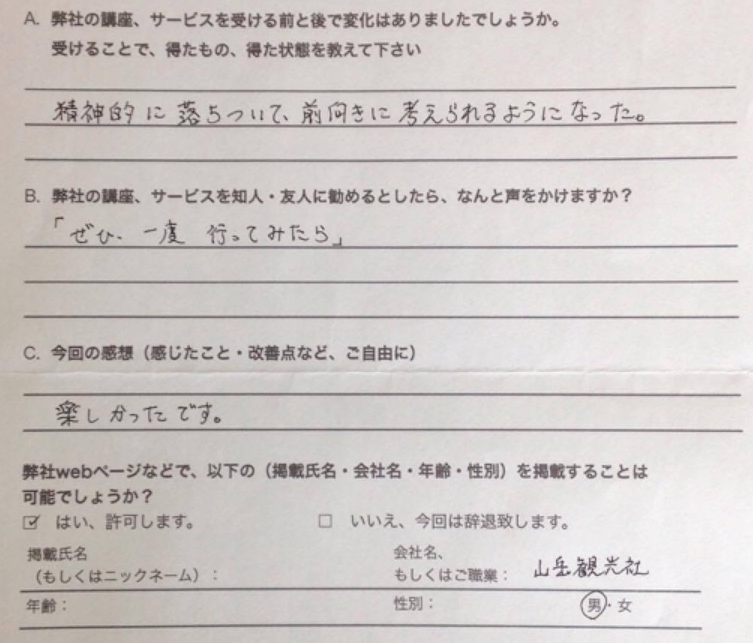 A. 弊社の講座、サービスを受ける前と後で変化はありましたでしょうか。
受けることで、得たもの、得た状態を教えて下さい
精神的に落ちついて、前向きに考えられるようになった。
B. 弊社の講座、サービスを知人・友人に勧めるとしたら、なんと声をかけますか？
「ぜひ、一度 行ってみたら」
C. 今回の感想（感じたこと・改善点など、ご自由に）
楽しかったです。
弊社webページなどで、以下の（掲載氏名・会社名・年齢・性別）を掲載することは
可能でしょうか？
☑ はい、許可します。 □ いいえ、今回は辞退致します。
掲載氏名 会社名、
（もしくはニックネーム）： もしくはご職業： 山岳観光社
年齢： 性別： 男・女